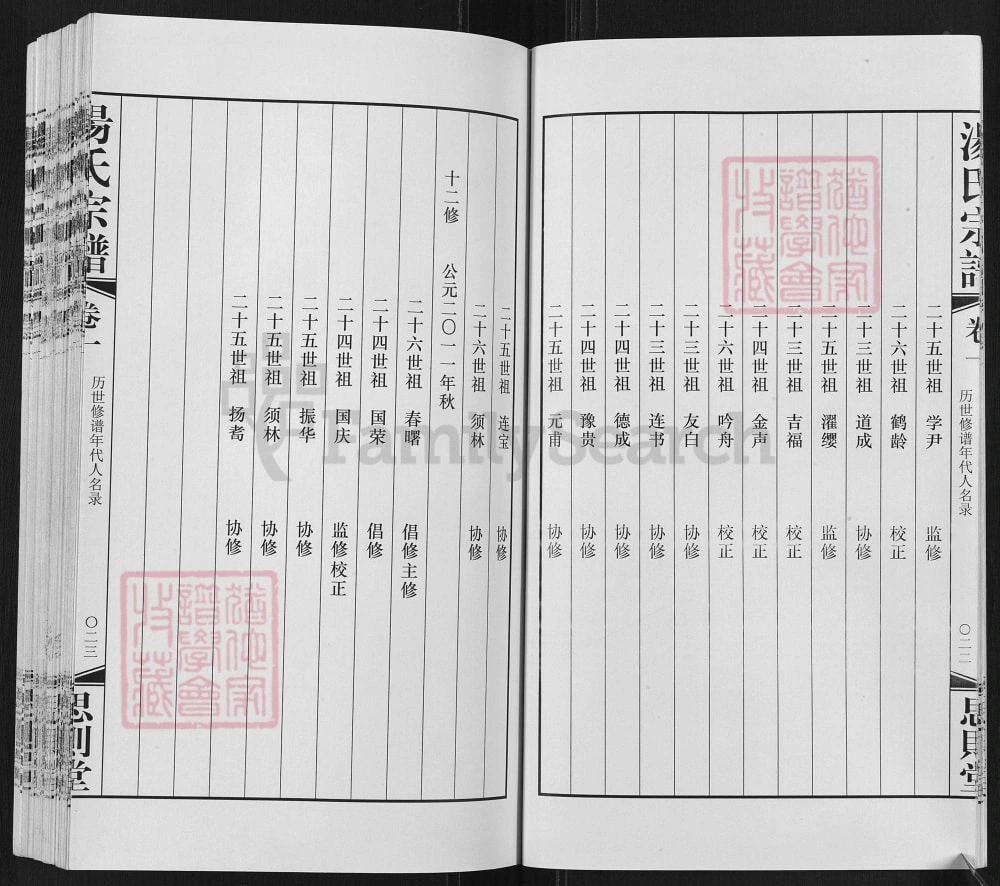 汤氏宗谱
卷一
历世修谱年代人名录
〇二二
思则堂
二十五世祖 学尹 监修
二十六世祖 鹤龄 校正
二十三世祖 道成 协修
二十五世祖 濯缨 监修
二十三世祖 吉福 校正
二十四世祖 金声 校正
二十六世祖 吟舟 校正
二十三世祖 友白 协修
二十三世祖 连书 协修
二十四世祖 德成 协修
二十四世祖 豫贵 协修
二十五世祖 元甫 协修
二十五世祖 连宝 协修
二十六世祖 须林 协修
十二修 公元二〇一一年秋
二十六世祖 春曙 倡修主修
二十四世祖 国荣 倡修
二十四世祖 国庆 监修校正
二十五世祖 振华 协修
二十五世祖 须林 协修
二十五世祖 扬耈 协修
汤氏宗谱
卷一
历世修谱年代人名录
〇二三
思则堂
FamilySearch